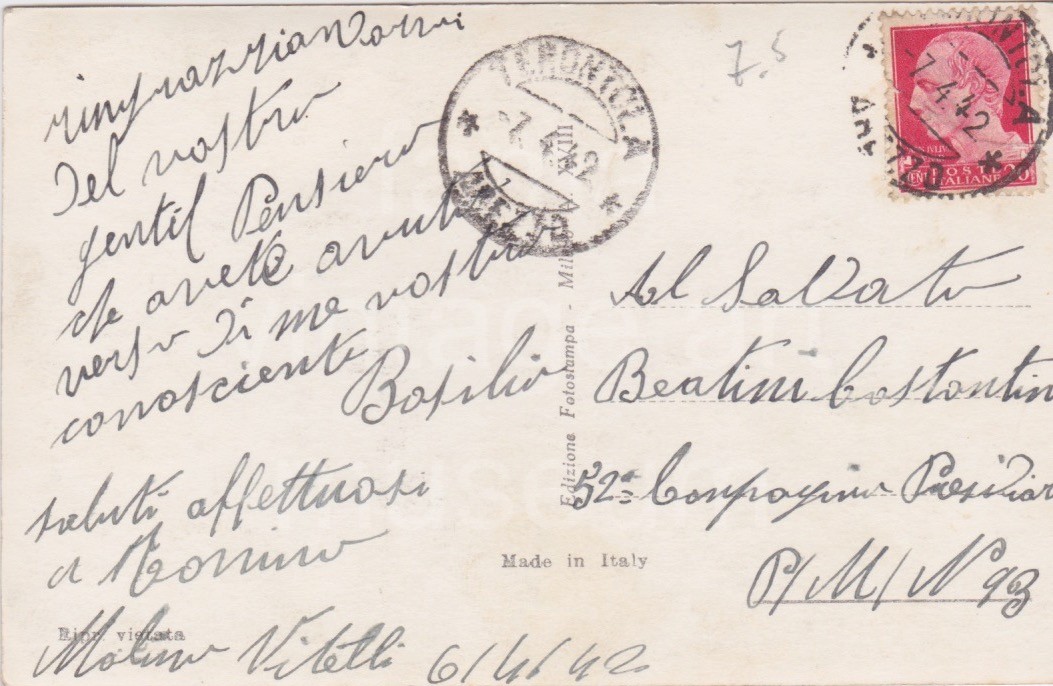 ringrazziandovi
del vostro
gentil Pensiero
che avete avuto
verso di me vostro
conosciente
Basilio
saluti affettuosi
a
Molino Vitelli 6/4/42
Ripr. vietata
TERONTOLA
7.4.42
XVIII
AREZZO
Edizione Fotostampa - Milano
Made in Italy
7.5
TERONTOLA
7.4.42
AREZZO
IVLIVS
CENT 20
POSTE
ITALIANE
Al Soldato
Beatini Costantin
52ª Compagnia Presidiar
P/M/ N 93